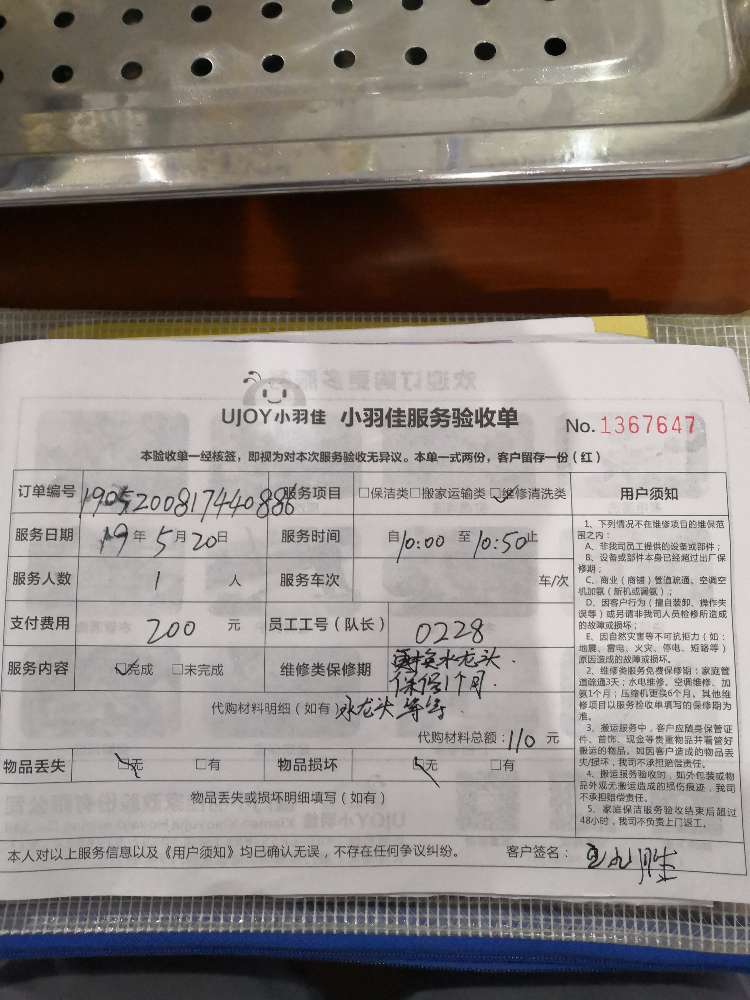 UJOY小羽佳 小羽佳服务验收单 No.1367647
本验收单一经核签，即视为对本次服务验收无异议。本单一式两份，客户留存一份（红）
订单编号 1905200817440886 服务项目 □保洁类□搬家运输类☑维修清洗类
服务日期 19年5月20日 服务时间 自10:00至10:50止
服务人数 1 人 服务车次 车/次
支付费用 200 元 员工工号（队长） 0228
服务内容 ☑完成 □未完成 维修类保修期 更换水龙头.
保修1个月.
代购材料明细（如有） 水龙头等等
代购材料总额：110 元
物品丢失 ☑无 □有 物品损坏 ☑无 □有
物品丢失或损坏明细填写（如有）
本人对以上服务信息以及《用户须知》均已确认无误，不存在任何争议纠纷。 客户签名：
用户须知
1、下列情况不在维修项目的维保范
围之内：
A、非我司员工提供的设备或部件；
B、设备或部件本身已经超过出厂保
修期；
C、商业（商铺）管道疏通、空调空
机加氨（新机或漏氨）；
D、因客户行为（擅自装卸、操作失
误等）或另请非我司人员检修所造成
的故障或损坏；
E、因自然灾害等不可抗拒力（如：
地震、雷电、火灾、停电、短路等）
原因造成的故障或损坏。
2、维修类服务免费保修期：家庭管
道疏通3天；水电维修、空调维修、加
氨1个月；压缩机更换6个月。其他维
修项目以服务验收单填写的保修期为
准。
3、搬运服务中，客户应随身保管证
件、首饰、现金等贵重物品并看管好
搬运的物品。如因客户造成的物品丢
失/损坏，我司不承担赔偿责任。
4、搬运服务验收时，如外包装或物
品外观无搬运造成的损伤痕迹，我司
不承担赔偿责任。
5、家庭保洁服务验收结束后超过
48小时，我司不负责上门返工。